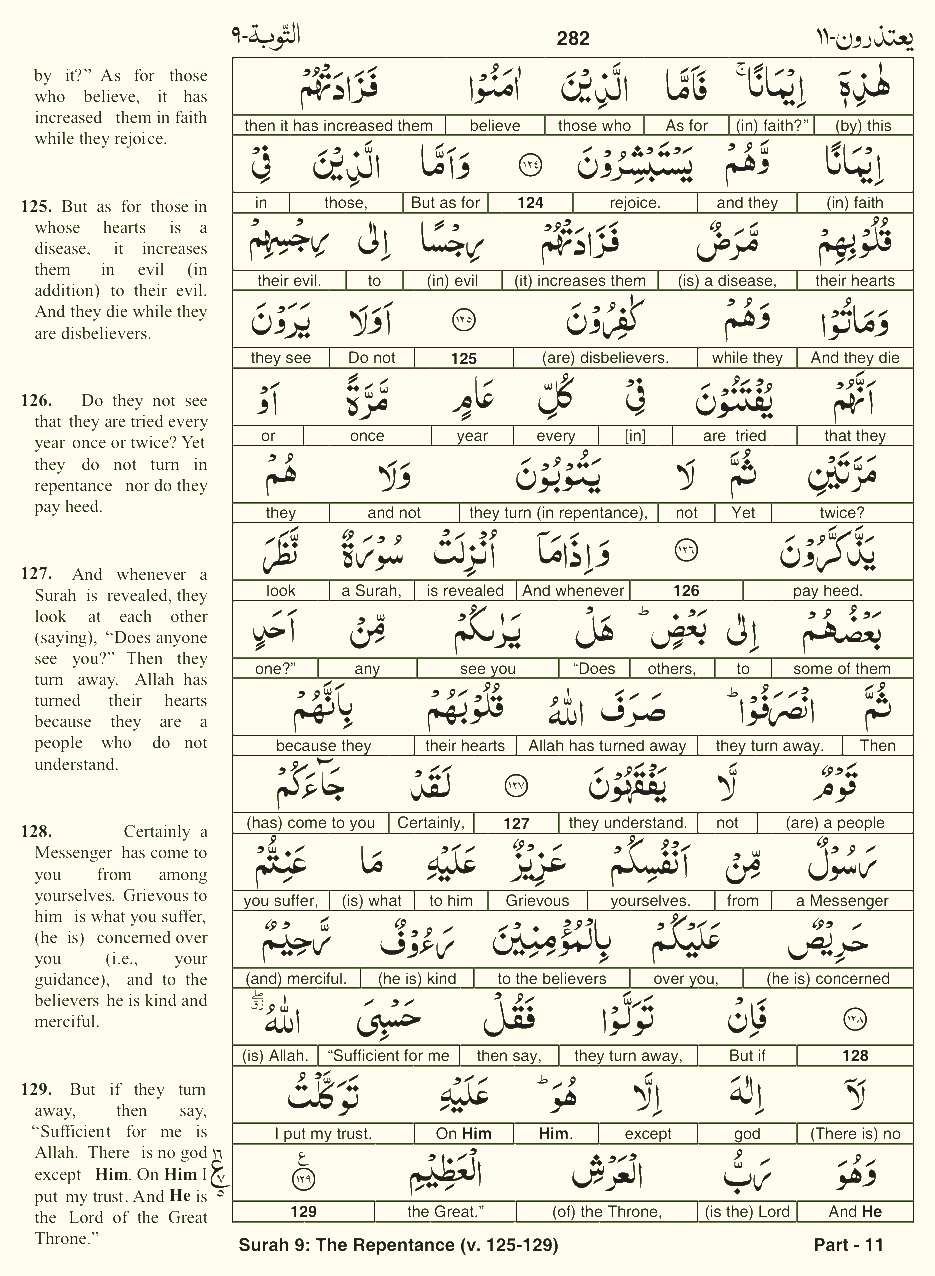 يعتذرون-١١ 282 التوبة-٩
by it?” As for those
who believe, it has
increased them in faith
while they rejoice.
125. But as for those in
whose hearts is a
disease, it increases
them in evil (in
addition) to their evil.
And they die while they
are disbelievers.
126. Do they not see
that they are tried every
year once or twice? Yet
they do not turn in
repentance nor do they
pay heed.
127. And whenever a
Surah is revealed, they
look at each other
(saying), “Does anyone
see you?” Then they
turn away. Allah has
turned their hearts
because they are a
people who do not
understand.
128. Certainly a
Messenger has come to
you from among
yourselves. Grievous to
him is what you suffer,
(he is) concerned over
you (i.e., your
guidance), and to the
believers he is kind and
merciful.
129. But if they turn
away, then say,
“Sufficient for me is
Allah. There is no god
except Him. On Him I
put my trust. And He is
the Lord of the Great
Throne.”
هٰذِهٖٓ اِيْمَانًا ۚ فَاَمَّا الَّذِيْنَ اٰمَنُوْا فَزَادَتْهُمْ
then it has increased them believe those who As for (in) faith?” (by) this
اِيْمَانًا وَّهُمْ يَسْتَبْشِرُوْنَ ١٢٤ وَاَمَّا الَّذِيْنَ فِيْ
in those, But as for 124 rejoice. and they (in) faith
قُلُوْبِهِمْ مَّرَضٌ فَزَادَتْهُمْ رِجْسًا اِلٰى رِجْسِهِمْ
their evil. to (in) evil (it) increases them (is) a disease, their hearts
وَمَاتُوْا وَهُمْ كٰفِرُوْنَ ١٢٥ اَوَلَا يَرَوْنَ
they see Do not 125 (are) disbelievers. while they And they die
اَنَّهُمْ يُفْتَنُوْنَ فِيْ كُلِّ عَامٍ مَّرَّةً اَوْ
or once year every [in] are tried that they
مَرَّتَيْنِ ثُمَّ لَا يَتُوْبُوْنَ وَلَا هُمْ
they and not they turn (in repentance), not Yet twice?
يَذَّكَّرُوْنَ ١٢٦ وَاِذَا مَآ اُنْزِلَتْ سُوْرَةٌ نَّظَرَ
look a Surah, is revealed And whenever 126 pay heed.
بَعْضُهُمْ اِلٰى بَعْضٍ ؕ هَلْ يَرٰىكُمْ مِّنْ اَحَدٍ
one?” any see you “Does others, to some of them
ثُمَّ انْصَرَفُوْا ؕ صَرَفَ اللّٰهُ قُلُوْبَهُمْ بِاَنَّهُمْ
because they their hearts Allah has turned away they turn away. Then
قَوْمٌ لَّا يَفْقَهُوْنَ ١٢٧ لَقَدْ جَآءَكُمْ
(has) come to you Certainly, 127 they understand. not (are) a people
رَسُوْلٌ مِّنْ اَنْفُسِكُمْ عَزِيْزٌ عَلَيْهِ مَا عَنِتُّمْ
you suffer, (is) what to him Grievous yourselves. from a Messenger
حَرِيْصٌ عَلَيْكُمْ بِالْمُؤْمِنِيْنَ رَءُوْفٌ رَّحِيْمٌ
(and) merciful. (he is) kind to the believers over you, (he is) concerned
١٢٨ فَاِنْ تَوَلَّوْا فَقُلْ حَسْبِيَ اللّٰهُ
(is) Allah. “Sufficient for me then say, they turn away, But if 128
لَآ اِلٰهَ اِلَّا هُوَ ؕ عَلَيْهِ تَوَكَّلْتُ
I put my trust. On Him Him. except god (There is) no
وَهُوَ رَبُّ الْعَرْشِ الْعَظِيْمِ ١٢٩
129 the Great.” (of) the Throne, (is the) Lord And He
Surah 9: The Repentance (v. 125-129) Part - 11